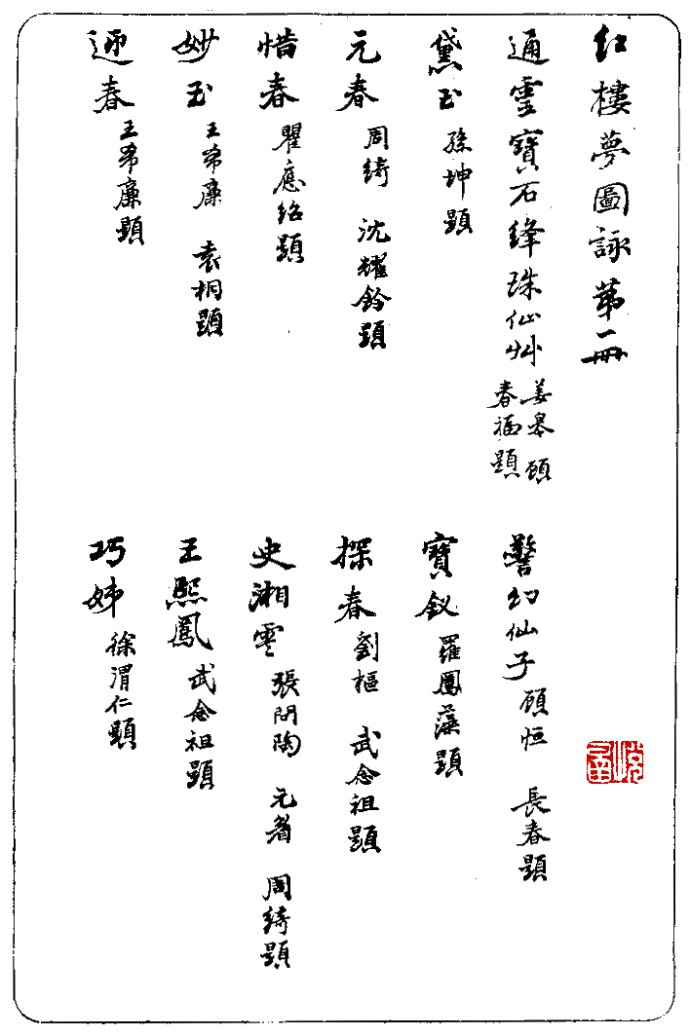 紅樓夢圖詠第一冊
通靈寶石絳珠仙艸 姜皋 顧春福題
警幻仙子 顧恒 長春題
黛玉 孫坤題
寶釵 羅鳳藻題
元春 周綺 沈耀鈴題
探春 劉樞 武念祖題
惜春 瞿應紹題
史湘雲 張問陶 元者 周綺題
妙玉 王希廉 袁桐題
王熙鳳 武念祖題
迎春 王希廉題
巧姊 徐渭仁題